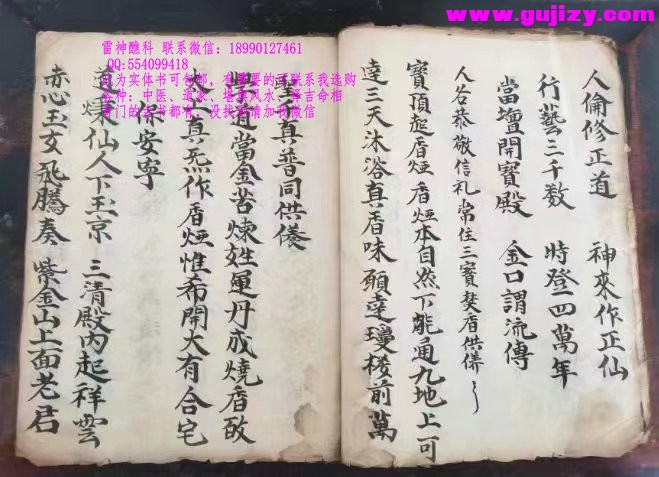 www.gujizy.com
雷神醮科 联系微信：18990127461
QQ:554099418
此为实体书可包邮，有需要的可联系我选购
各种：中医、道家、堪舆风水、择吉命相
奇门的古书都有，没找到请加我微信
人倫修正道 神來作正仙
行藝三千数 時登一四萬年
當壇開寳殿 金口謂流傳
人各恭敬信礼常住三寳焚香供養
寳頂起香烟香烟本自然下能通九地上可
達三天沐浴真香味願達瓊楼前萬
聖千真普同供養
學道當金苦煉姓運丹成燒香啟
太真炁作香烟惟希開大有合宅
保安寧
遠煉仙人下玉京 三清殿内起祥雲
赤心玉女飛騰奏 紫金山上面老君